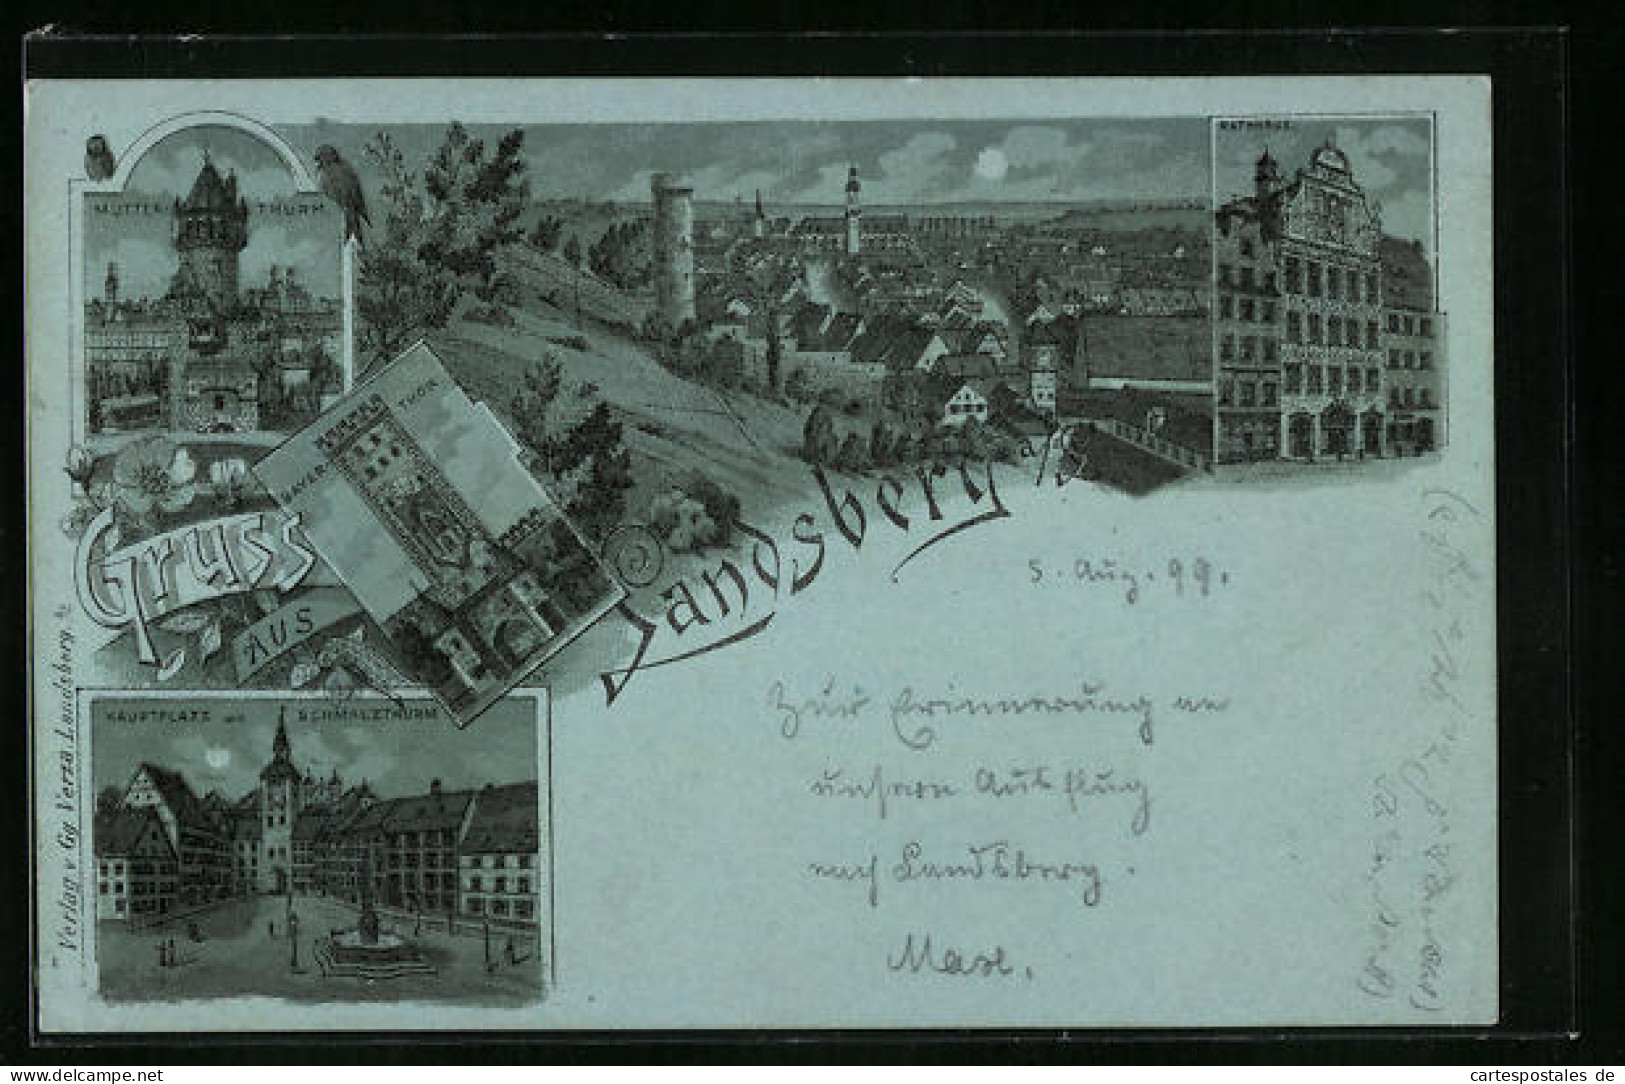 MUTTER-THURM
RATHHAUS.
BAYER-THOR
Gruss
AUS
Landsberg a/L
HAUPTPLATZ mit SCHMALZTHURM
Verlag v. Gg. Verza Landsberg a/L
5. Aug. 99.
Zur Erinnerung an
unseren Ausflug
nach Landsberg.
Max.
cartespostales de